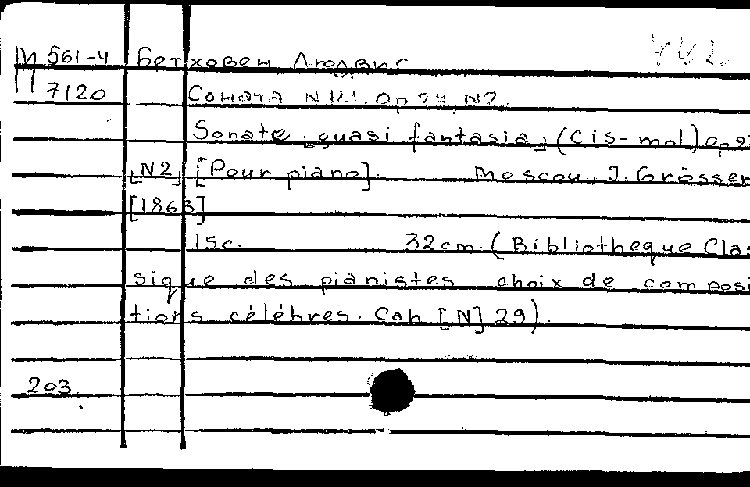 П 561-4 Бетховен Людвиг
7120 Соната N 14. Op 27, N2.
Sonate „quasi fantasia„ (Cis-mol) op 27
[N2] [Pour piano]. Moscou, J. Grosser
[1863]
15c. 32cm. (Bibliotheque Clas
sique des pianistes choix de composi
tions célébres. Cah [N] 29).
203